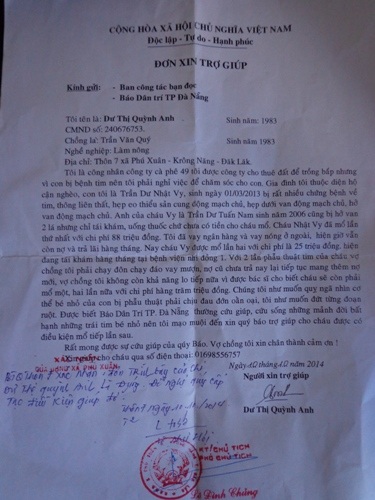 CỘNG HÒA XÃ HỘI CHỦ NGHĨA VIỆT NAM
Độc lập - Tự do - Hạnh phúc
ĐƠN XIN TRỢ GIÚP
Kính gửi: - Ban công tác bạn đọc
- Báo Dân trí TP Đà Nẵng
Tôi tên là: Dư Thị Quỳnh Anh Sinh năm: 1983
CMND số: 240676753.
Chồng là: Trần Văn Quý Sinh năm 1983
Nghề nghiệp: Làm nông
Địa chỉ: Thôn 7 xã Phú Xuân - Krông Năng - Đăk Lăk.
Tôi là công nhân công ty cà phê 49 tôi được công ty cho thuê đất để trồng bắp nhưng
vì con bị bệnh tim nên tôi phải nghỉ việc để chăm sóc cho con. Gia đình tôi thuộc diện hộ
cận nghèo, con tôi là Trần Dư Nhật Vy, sinh ngày 01/03/2013 bị rất nhiều chứng bệnh về
tim, thông liên thất, hẹp eo thiểu sản cung động mạch chủ, hẹp dưới van động mạch chủ, hở
van động mạch chủ. Anh của cháu Vy là Trần Dư Tuấn Nam sinh năm 2006 cũng bị hở van
2 lá nhưng chỉ tái khám, uống thuốc chứ chưa có tiền cho cháu mổ. Cháu Nhật Vy đã mổ lần
thứ nhất với chi phí 88 triệu đồng. Tôi đã vay ngân hàng và vay nóng ở ngoài, hiện giờ vẫn
còn nợ và trả lãi hàng tháng. Nay cháu Vy được mổ lần hai với chi phí là 25 triệu đồng. hiện
đang tái khám hàng tháng tại bệnh viện nhi đồng 1. Với 2 lần phẫu thuật tim của cháu vợ
chồng tôi phải chạy đôn chạy đáo vay mượn, nợ cũ chưa trả nay lại tiếp tục mang thêm nợ
mới, vợ chồng tôi không còn khả năng lo tiếp nữa vì được bác sĩ cho biết cháu sẽ còn phải
mổ một, hai lần nữa với chi phí hàng trăm triệu đồng. Chúng tôi như muốn quỵ ngã nhìn cơ
thể bé nhỏ của con bị phẫu thuật phải chịu đau đớn oằn oại, tôi như muốn đứt từng đoạn
ruột. Được biết Báo Dân Trí TP. Đà Nẵng. thường cứu giúp, cứu sống những mảnh đời bất
hạnh những trái tim bé nhỏ nên tôi mạo muội đến xin quý báo trợ giúp cho cháu được có
điều kiện mổ tiếp lần sau.
Rất mong được sự cứu giúp của qúy Báo. Vợ chồng tôi xin chân thành cảm ơn !
cho cháu qua số điện thoại: 01698556757
XÁC NHẬN
CỦA UBND XÃ PHÚ XUÂN
Ngày 10 tháng 10 năm 2014
Người xin trợ giúp
Dư Thị Quỳnh Anh
KT/CHỦ TỊCH
PHÓ CHỦ TỊCH
Đình Chúng